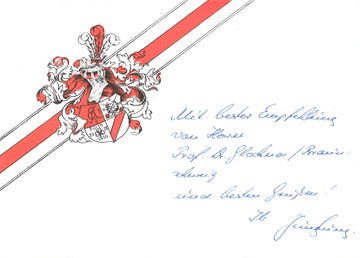 Mit bester Empfehlung
von Herrn
Prof. Dr. Glockner / Braun-
schweig
und besten Grüßen!
Ihr